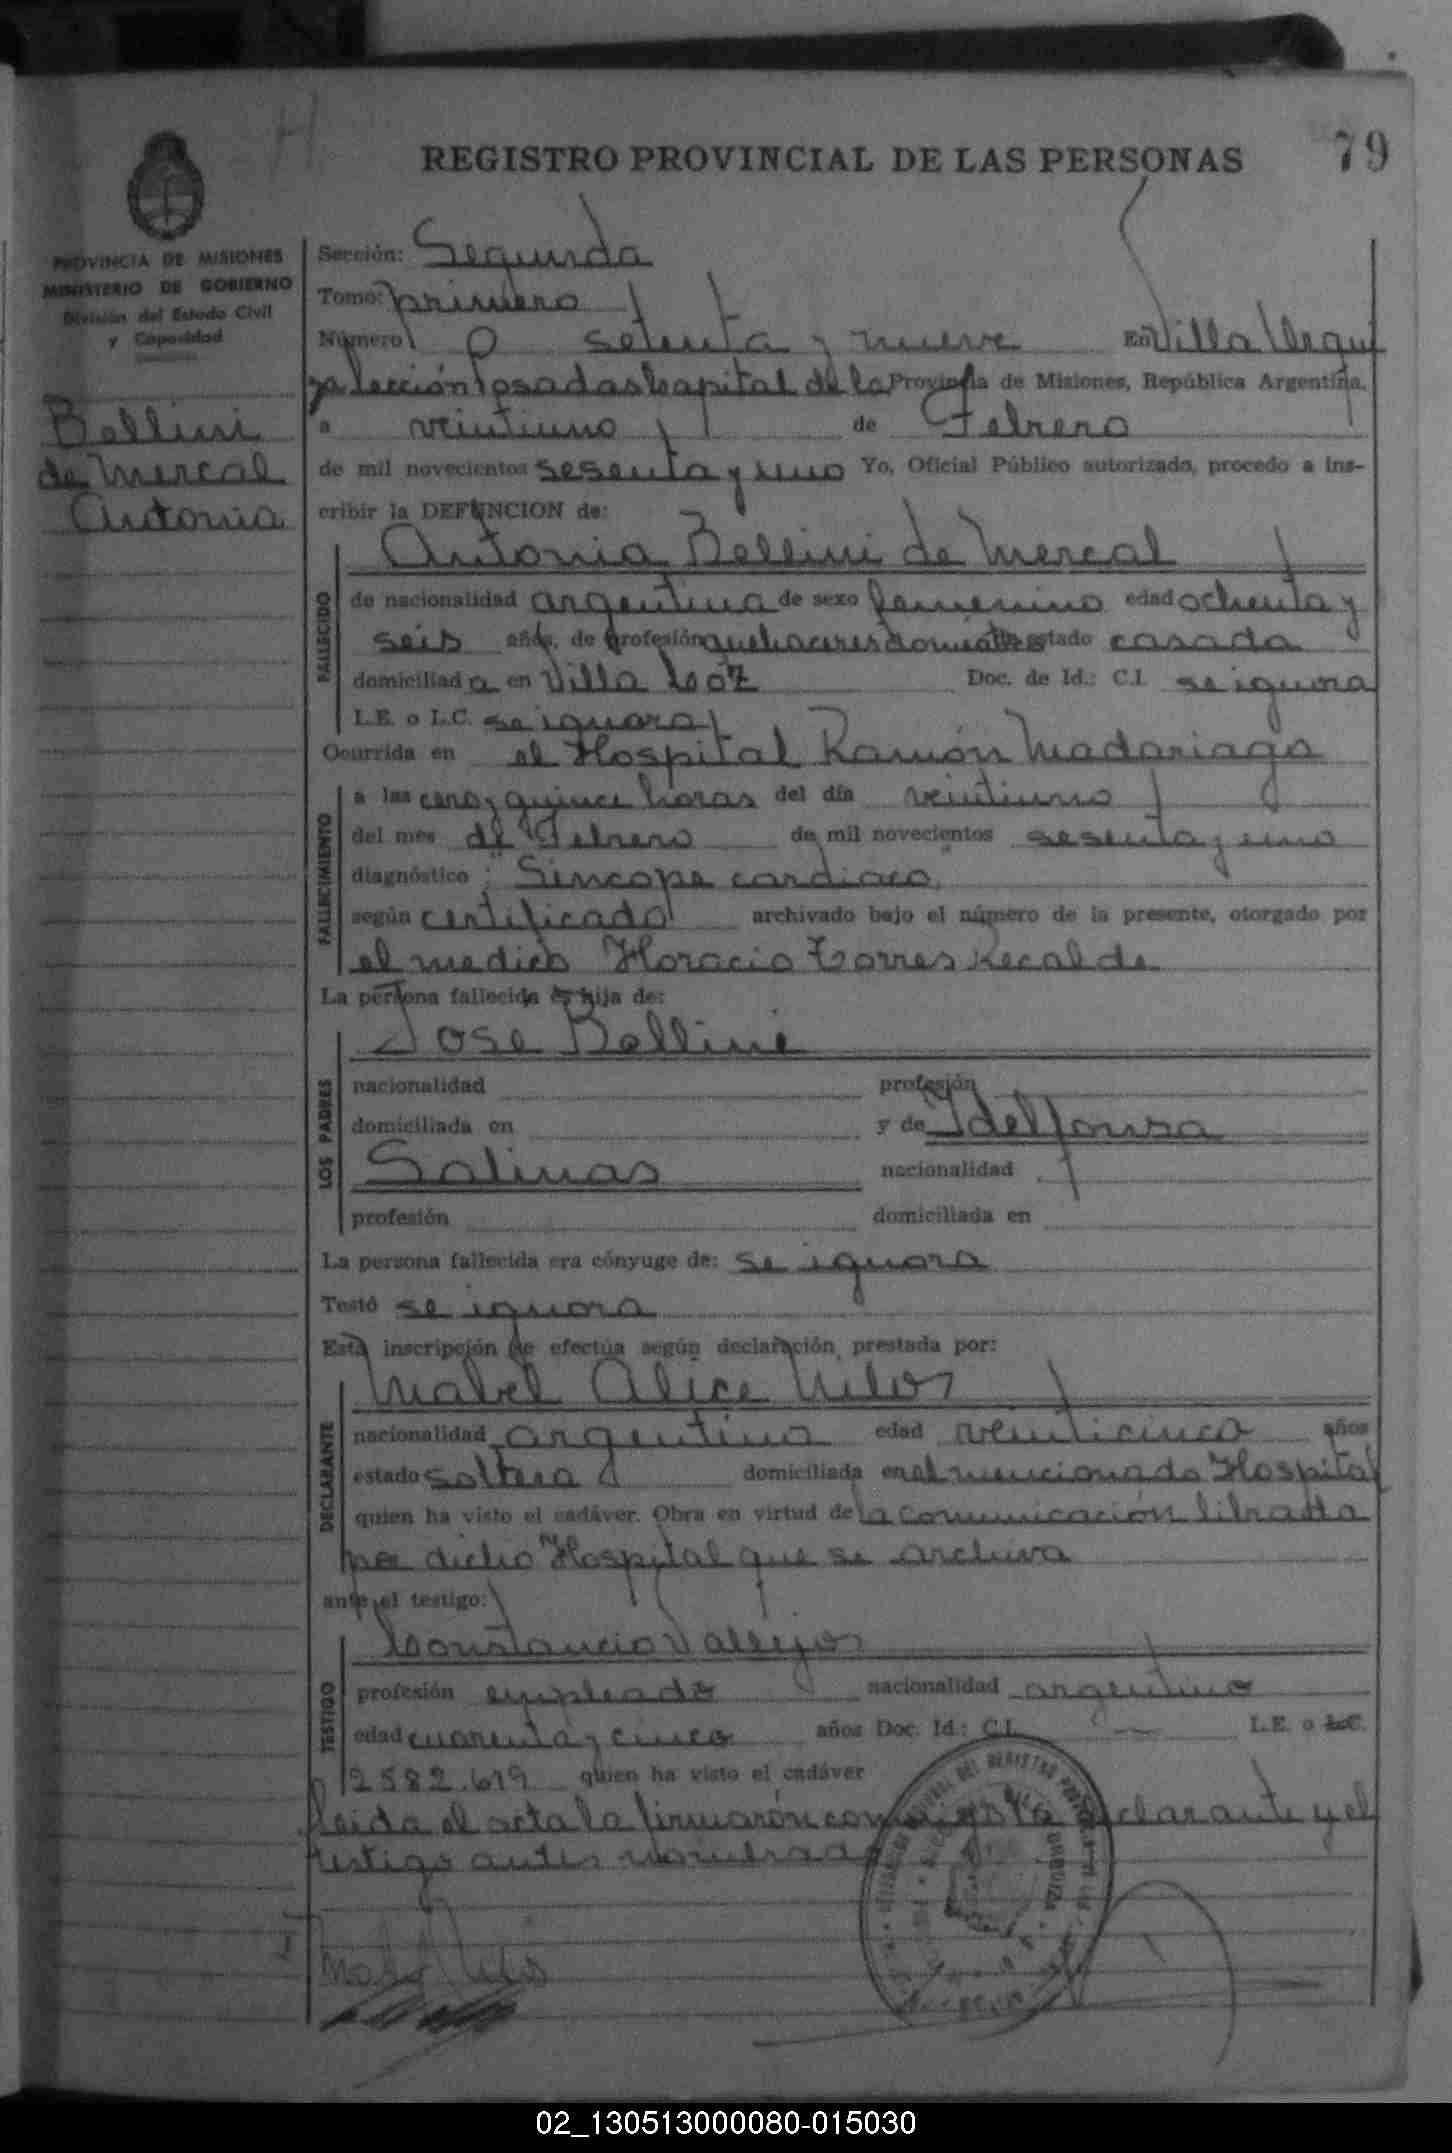 79
REGISTRO PROVINCIAL DE LAS PERSONAS
PROVINCIA DE MISIONES
MINISTERIO DE GOBIERNO
División del Estado Civil
y Capacidad
Bellini
de Mercal
Antonia
Sección: Segunda
Tomo: primero
Número setenta y nueve En Villa Urqui
za Sección Posadas Capital de la Provincia de Misiones, República Argentina,
a veintiuno de Febrero
de mil novecientos sesenta y uno Yo, Oficial Público autorizado, procedo a ins-
cribir la DEFUNCION de:
Antonia Bellini de Mercal
FALLECIDO
de nacionalidad argentina de sexo femenino edad ochenta y
seis años, de profesión quehaceres domésticos estado casada
domiciliada en Villa Doc. de Id.: C.I. se ignora
L.E. o L.C. se ignora
Ocurrida en el Hospital Ramón Madariaga
FALLECIMIENTO
a las cero y quince horas del día veintiuno
del mes de Febrero de mil novecientos sesenta y uno
diagnóstico: Sincope cardiaco,
según certificado archivado bajo el número de la presente, otorgado por
el medico Horacio Torres Recalde
La persona fallecida es hija de:
Jose Bellini
LOS PADRES
nacionalidad profesión
domiciliada en y de Idelfonsa
Salinas nacionalidad
profesión domiciliada en
La persona fallecida era cónyuge de: se ignora
Testó se ignora
Esta inscripción se efectúa según declaración prestada por:
Mabel Alice
DECLARANTE
nacionalidad argentina edad veinticinco años
estado soltera domiciliada en el mencionado Hospital
quien ha visto el cadáver. Obra en virtud de la comunicación librada
por dicho Hospital que se archiva
ante el testigo:
Constancio Vallejos
TESTIGO
profesión empleado nacionalidad argentino
edad cuarenta y cinco años Doc. Id.: C.I. — L.E. o L.C.
2582.619 quien ha visto el cadáver
Leida el acta la firmarón conmigo la declarante y el
testigo antes nombrado
02_130513000080-015030